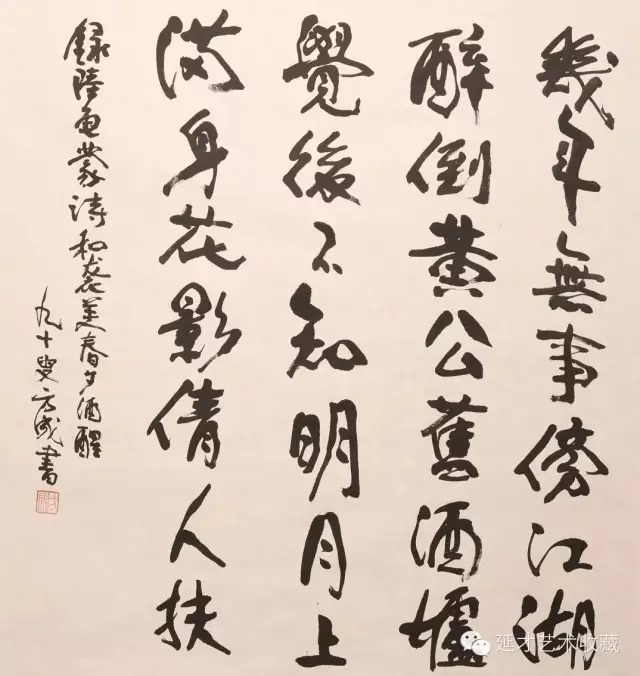 幾年無事傍江湖
醉倒黃公舊酒壚
覺後不知明月上
滿身花影倩人扶
錄陸龜蒙詩和襲美春夕酒醒
九十叟方成書
延才艺术收藏